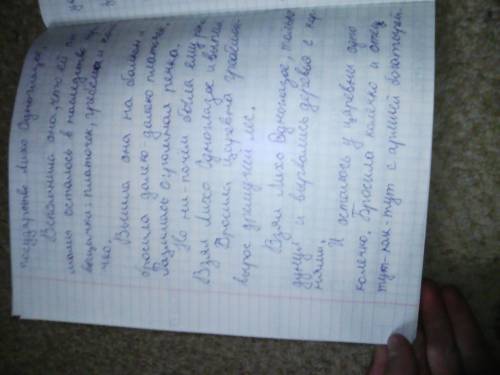 государство Лихо Одноглазое.
Вспомнила она, что ей
мамы осталось в наследство
вещички: платочек, гребешок и
чко.
Вышла она на балкон и
бросила далеко-далеко платочек
разлилась огромная речка.
Но ни-почём была ему река.
Взял Лихо Одноглазое и выпил
Бросила Царевна гребешок
вырос дремучий лес.
Взял Лихо Одноглазое, только
дунул и вырвались деревья с кор-
нями.
И осталось у царевны одно
колечко. Бросила колечко и откуда
тут-как-тут с армией богатырей